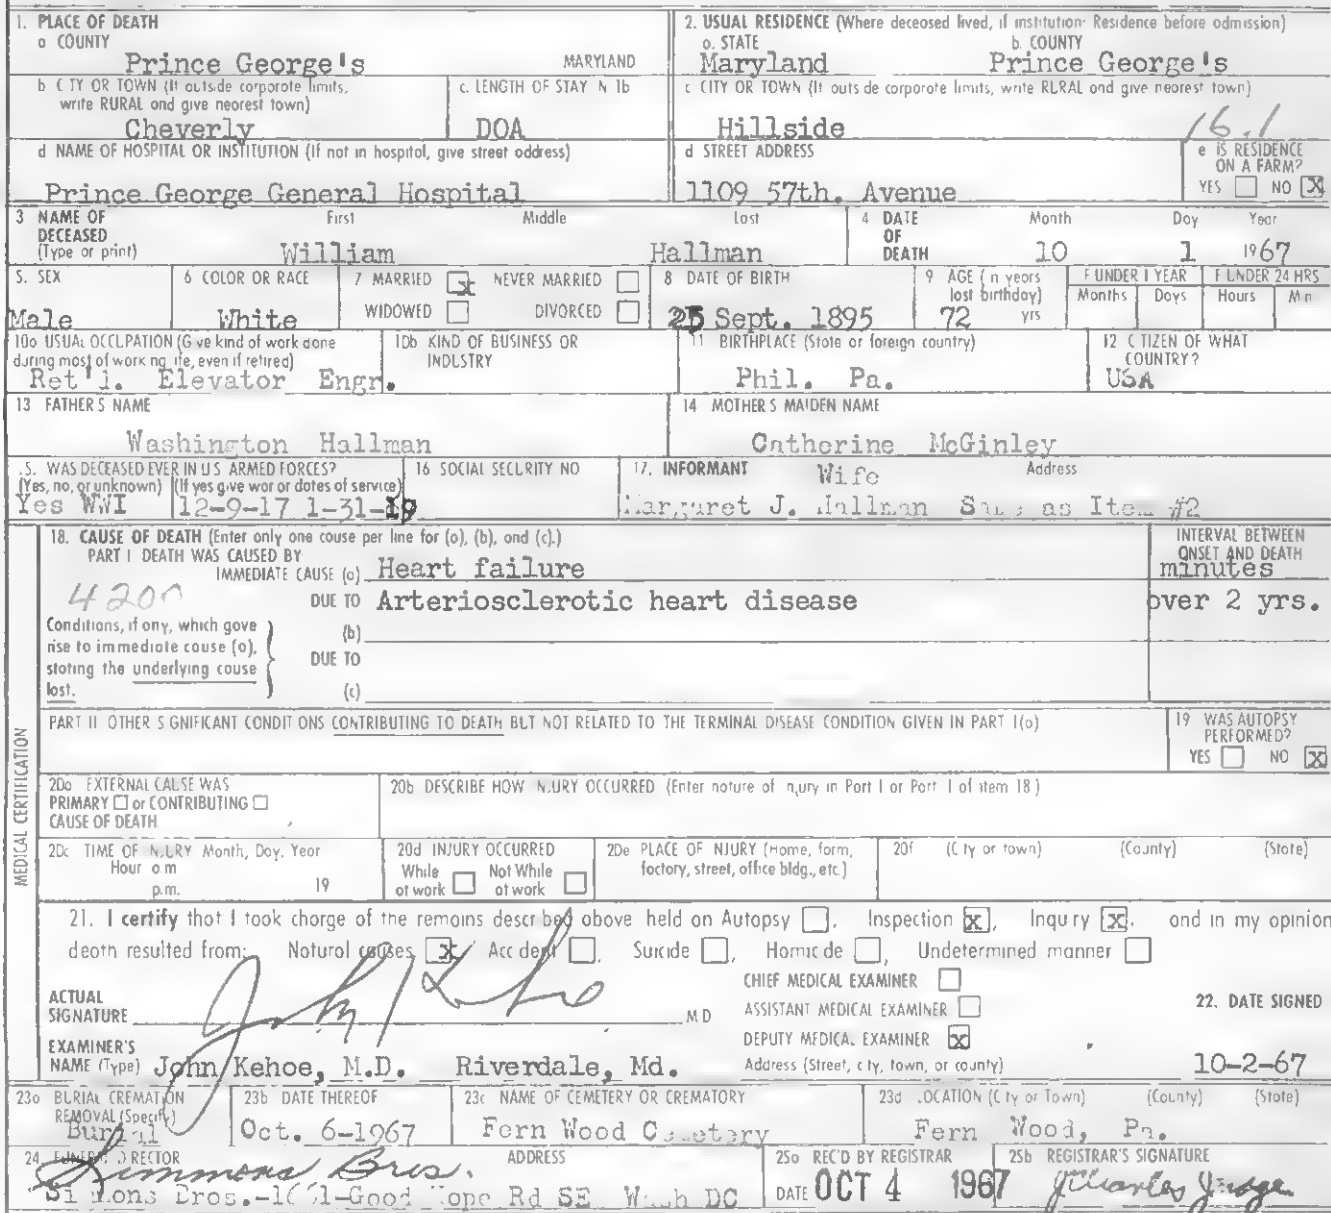 1. PLACE OF DEATH
a COUNTY
Prince George's MARYLAND
2. USUAL RESIDENCE (Where deceased lived, if institution- Residence before admission)
a. STATE b. COUNTY
Maryland Prince George's
b C TY OR TOWN (If outside corporate limits, write RURAL and give nearest town)
Cheverly
c. LENGTH OF STAY N 1b
DOA
c CITY OR TOWN (If outs de corporate limits, write RURAL and give nearest town)
Hillside
16.1
d NAME OF HOSPITAL OR INSTITUTION (If not in hospital, give street address)
Prince George General Hospital
d STREET ADDRESS
1109 57th. Avenue
e IS RESIDENCE ON A FARM?
YES NO X
3 NAME OF DECEASED (Type or print) First Middle Last
William Hallman
4 DATE OF DEATH Month Day Year
10 1 1967
5. SEX
Male
6 COLOR OR RACE
White
7 MARRIED x NEVER MARRIED
WIDOWED DIVORCED
8 DATE OF BIRTH
25 Sept. 1895
9 AGE ( n years last birthday)
72 yrs
F UNDER 1 YEAR
Months Days
F UNDER 24 HRS
Hours M n
10a USUAL OCCUPATION (G ve kind of work done during most of work ng ife, even if retired)
Ret'd. Elevator Engr.
10b KIND OF BUSINESS OR INDUSTRY
11 BIRTHPLACE (State or foreign country)
Phil. Pa.
12 C TIZEN OF WHAT COUNTRY?
USA
13 FATHER S NAME
Washington Hallman
14 MOTHER S MAIDEN NAME
Catherine McGinley
15. WAS DECEASED EVER IN U S ARMED FORCES?
(Yes, no, or unknown) (If yes give war or dates of service)
Yes WWI 12-9-17 1-31-19
16 SOCIAL SECURITY NO
17. INFORMANT Address
Wife
Margaret J. Hallman Same as Item #2
MEDICAL CERTIFICATION
18. CAUSE OF DEATH (Enter only one cause per line for (a), (b), and (c).)
PART I DEATH WAS CAUSED BY
IMMEDIATE CAUSE (a) Heart failure
INTERVAL BETWEEN ONSET AND DEATH
minutes
4200
DUE TO Arteriosclerotic heart disease over 2 yrs.
Conditions, if any, which gave rise to immediate cause (a), stating the underlying cause last.
(b)
DUE TO
(c)
PART II OTHER S GNIFICANT CONDIT ONS CONTRIBUTING TO DEATH BUT NOT RELATED TO THE TERMINAL DISEASE CONDITION GIVEN IN PART I(a)
19 WAS AUTOPSY PERFORMED?
YES NO X
20a EXTERNAL CAUSE WAS
PRIMARY or CONTRIBUTING
CAUSE OF DEATH
20b DESCRIBE HOW NJURY OCCURRED (Enter nature of njury in Part I or Part I of item 18)
20c TIME OF NJURY Month, Day, Year
Hour a m
p.m. 19
20d INJURY OCCURRED
While at work Not While at work
20e PLACE OF NJURY (Home, farm, factory, street, office bldg., etc.)
20f (C ty or town) (County) (State)
21. I certify that I took charge of the remains descr bed above held an Autopsy , Inspection x, Inqu ry x, and in my opinion
death resulted from: Natural causes x Acc dent , Suicide , Homic de , Undetermined manner
CHIEF MEDICAL EXAMINER
ACTUAL SIGNATURE John Kehoe M D
ASSISTANT MEDICAL EXAMINER
22. DATE SIGNED
DEPUTY MEDICAL EXAMINER x
EXAMINER'S NAME (Type) John Kehoe, M.D. Riverdale, Md.
Address (Street, c ty, town, or county)
10-2-67
23a BURIAL CREMATION REMOVAL (Specify)
Burial
23b DATE THEREOF
Oct. 6-1967
23c NAME OF CEMETERY OR CREMATORY
Fern Wood Cemetery
23d LOCATION (C ty or Town) (County) (State)
Fern Wood, Pa.
24 FUNERAL DIRECTOR ADDRESS
Simmons Bros.
Simmons Bros.-1661-Good Hope Rd SE Wash DC
25a REC'D BY REGISTRAR
DATE OCT 4 1967
25b REGISTRAR'S SIGNATURE
Charles Judge